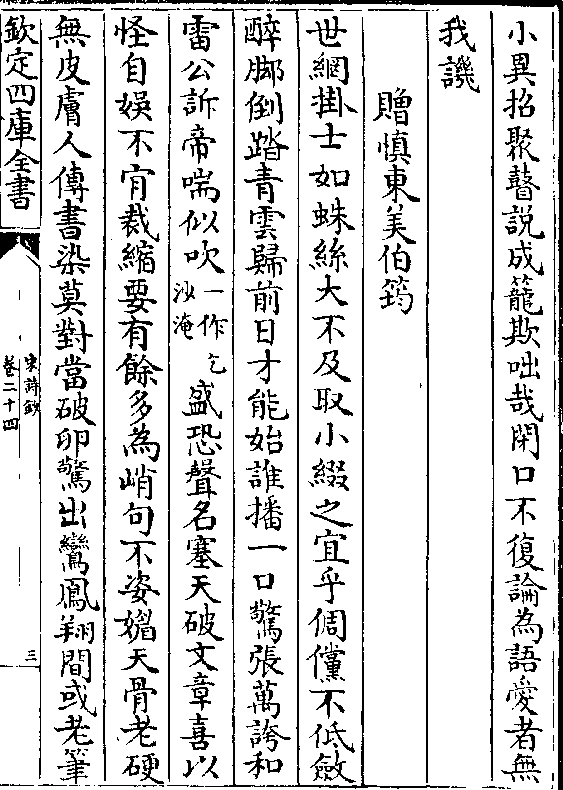 小異招聚瞽説成籠欺咄哉閉口不復論為語愛者無
我譏
贈慎東美伯筠
世網掛士如蛛絲大不及取小綴之宜乎倜儻不低斂
醉脚倒踏青雲歸前日才能始誰播一口驚張萬誇和
雷公訴帝喘似吹一作沙淹乞盛恐聲名塞天破文章喜以
怪自娯不肎裁縮要有餘多為峭句不姿媚天骨老硬
無皮膚人傳書染莫對當破卵驚出鸞鳳翔間或老筆
欽定四庫全書
宋詩鈔
卷二十四
三